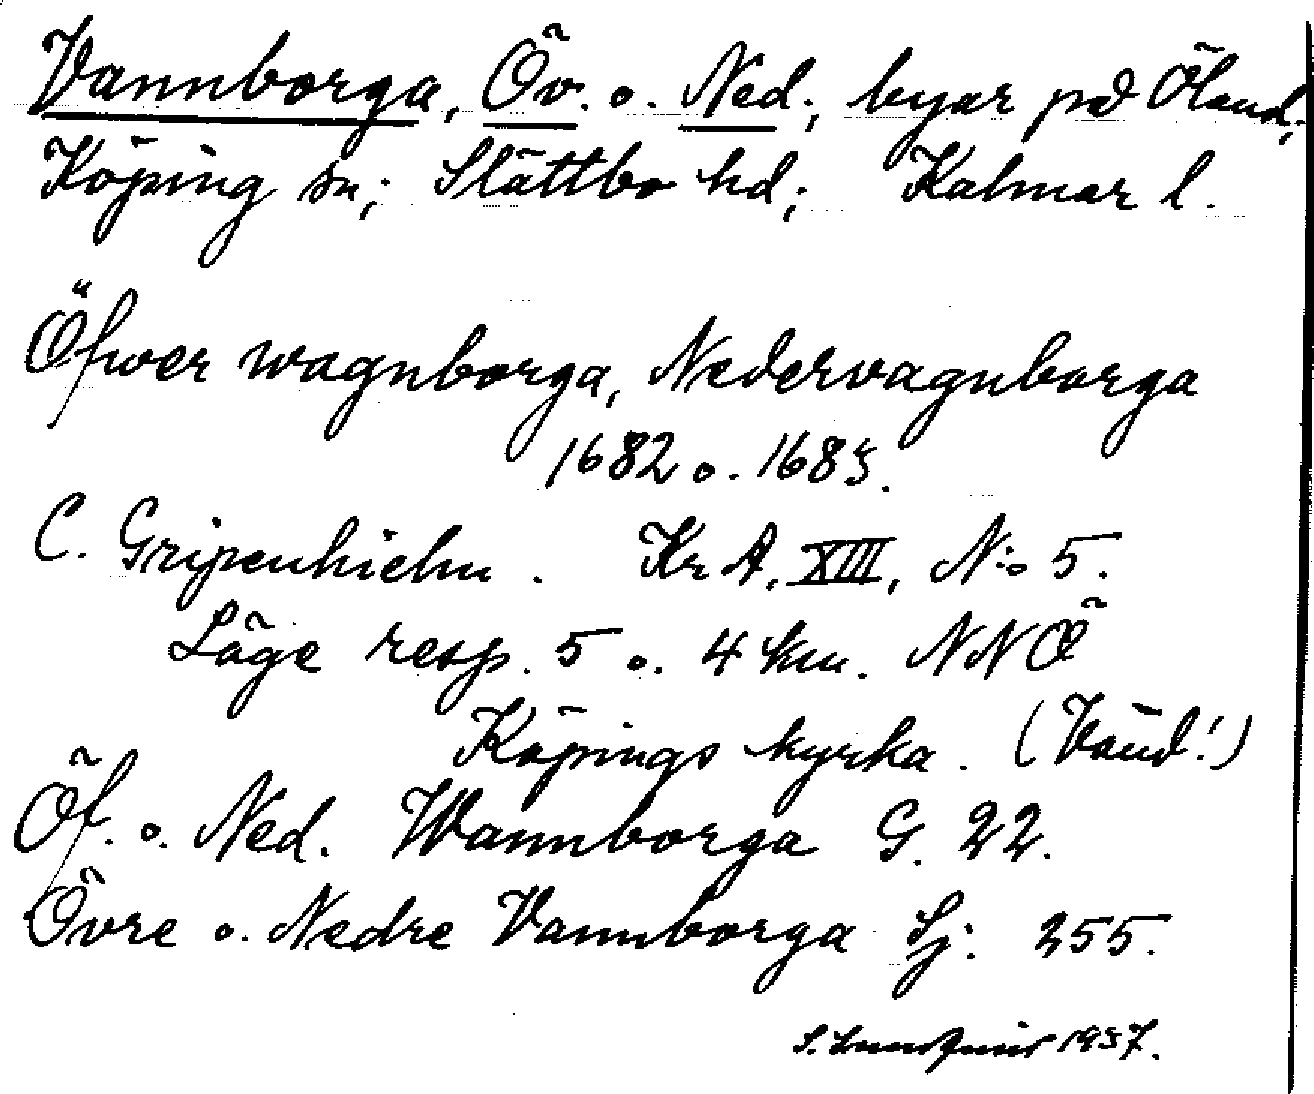 Vannborga, Öv. o. Ned., byar på Öland,
Köping sn; Slättbo hd; Kalmar l.
Öfwer wagnborga, Nedervagnborga
1682 o. 1683.
C. Gripenhielm. Kr A, XIII, N:o 5.
Läge resp. 5 o. 4 km. NNÖ
Köpings kyrka. (Vänd!)
Öf. o. Ned. Wannborga G. 22.
Övre o. Nedre Vannborga Sj. 255.
S. 1937.